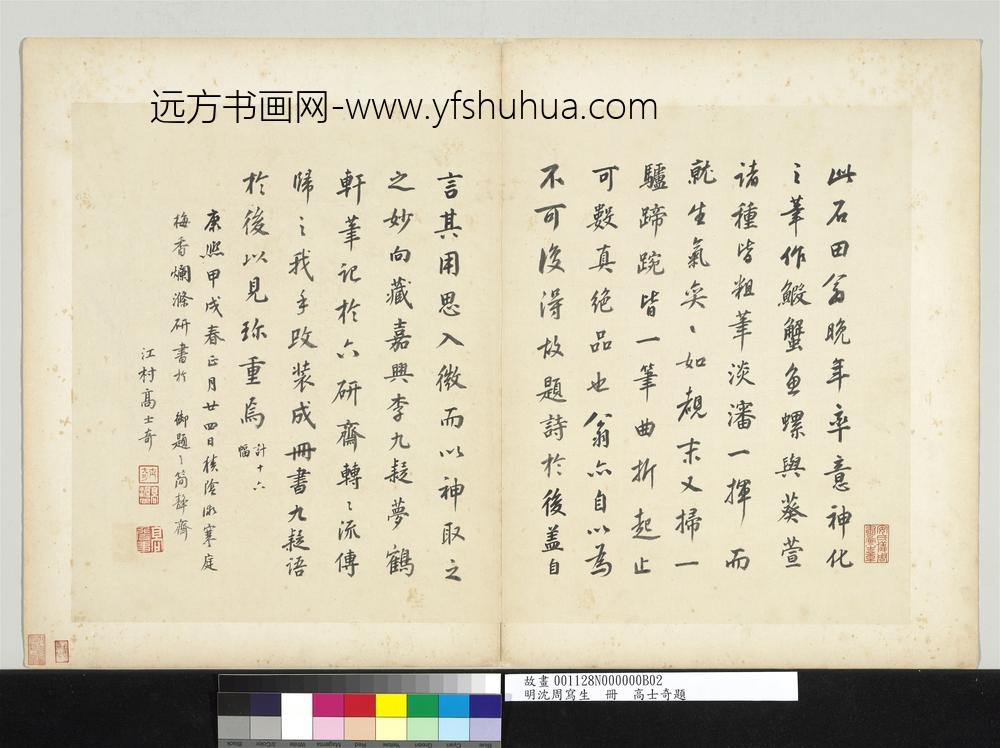 远方书画网-www.yfshuhua.com
此石田翁晚年率意神化
之筆作鰕蟹魚螺與葵萱
諸種皆粗筆淡瀋一揮而
就生氣奕〻如覩末又掃一
驢蹄踠皆一筆曲折起止
可數真絕品也翁亦自以為
不可復得故題詩於後蓋自
言其用思入微而以神取之
之妙向藏嘉興李九疑夢鶴
軒筆記於六研齋轉〻流傳
歸之我手改裝成冊書九疑語
於後以見珎重焉 計十六幅
康熙甲戌春正月廿四日積陰微寒庭
梅香爛滌研書於 御題〻簡靜齋
江村高士奇
故畫 001128N000000B02
明沈周寫生 冊 高士奇題
Black
3/Color
White
Magenta
Red
Yellow
Green
Cyan
Blue